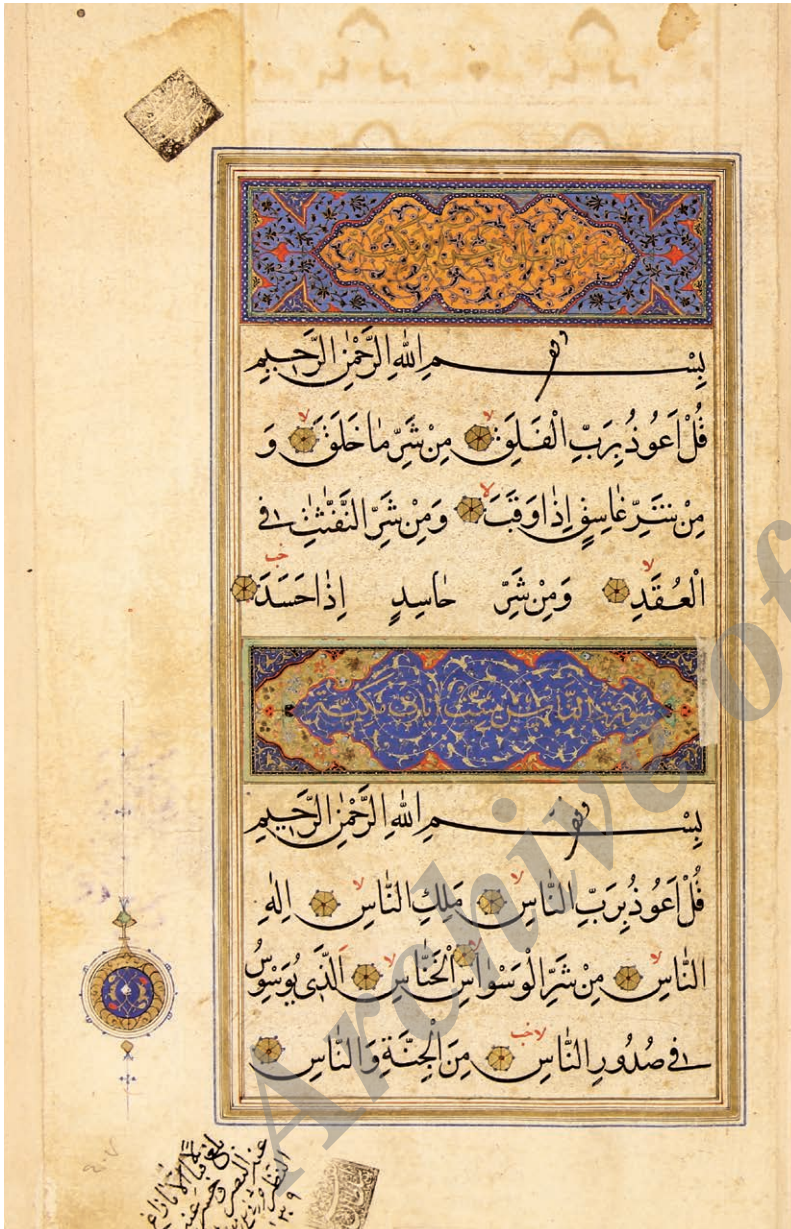 بِسْمِ اللّٰهِ الرَّحْمٰنِ الرَّحيمِ
قُلْ اَعُوذُ بِرَبِّ الْفَلَقِ لا مِنْ شَرِّ مٰا خَلَقَ لا وَ
مِنْ شَرِّ غٰاسِقٍ اِذٰا وَقَبَ لا وَمِنْ شَرِّ النَّفّٰثٰتِ فِى
الْعُقَدِ لا وَمِنْ شَرِّ حٰاسِدٍ اِذٰا حَسَدَ
سورة الناس ست آيات مكية
بِسْمِ اللّٰهِ الرَّحْمٰنِ الرَّحيمِ
قُلْ اَعُوذُ بِرَبِّ النّٰاسِ لا مَلِكِ النّٰاسِ لا اِلٰهِ
النّٰاسِ لا مِنْ شَرِّ الْوَسْوٰاسِ لا الْخَنّٰاسِ لا اَلَّذى يُوَسْوِسُ
فى صُدُورِ النّٰاسِ لا مِنَ الْجِنَّةِ وَ النّٰاسِ
Archive of